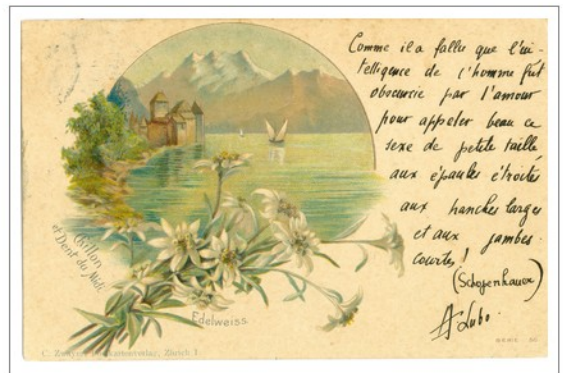 Comme il a fallu que l'in-
telligence de l'homme fut
obscurcie par l'amour
pour appeler beau ce
sexe de petite taille
aux épaules étroites
aux hanches larges
et aux jambes
courtes !
(Schopenhauer)
A Lubo.
Chillon
et Dent du Midi.
Edelweiss.
C. Künzli, Zürich I
SERIE